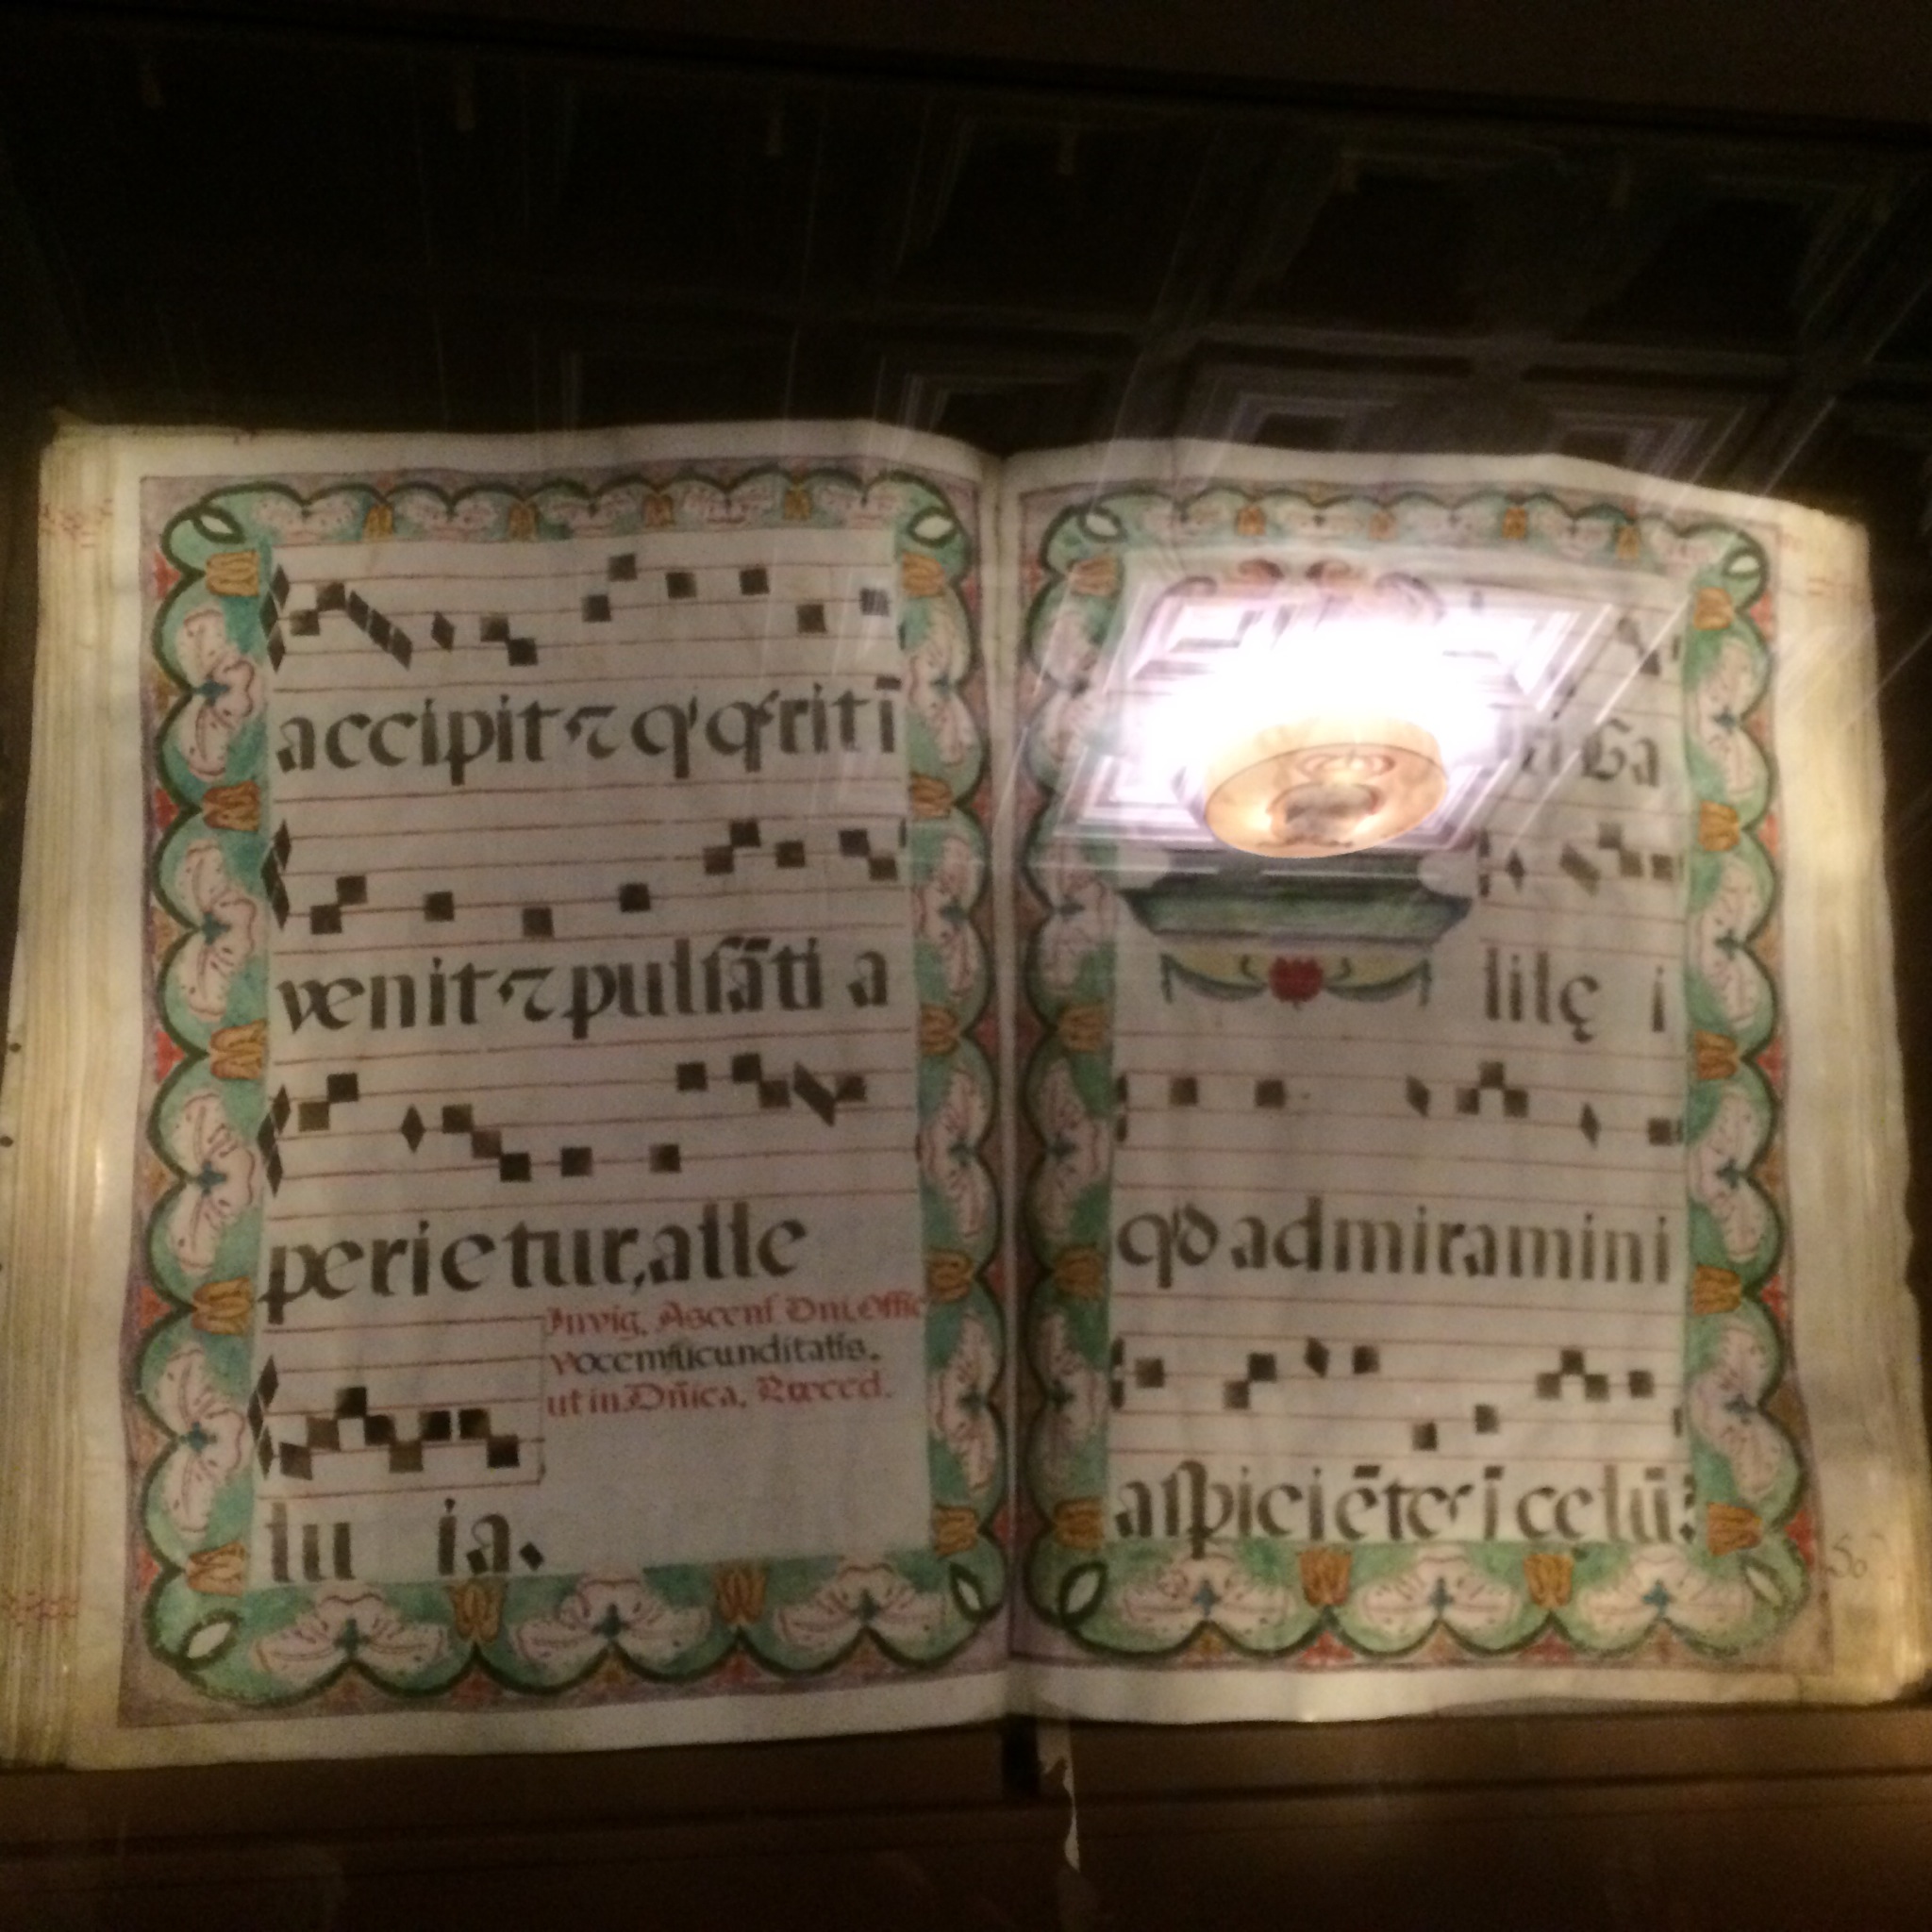 accipit ⁊ q' q́rit ī
venit ⁊ pulsāti a
perietur, alle
Invig. Ascens Dni. Offic
vocem iucunditatis.
ut in Dñica. Præced.
lu ia.
Ga
lilę i
q'd admiramini
aspiciētes ī cęlū?